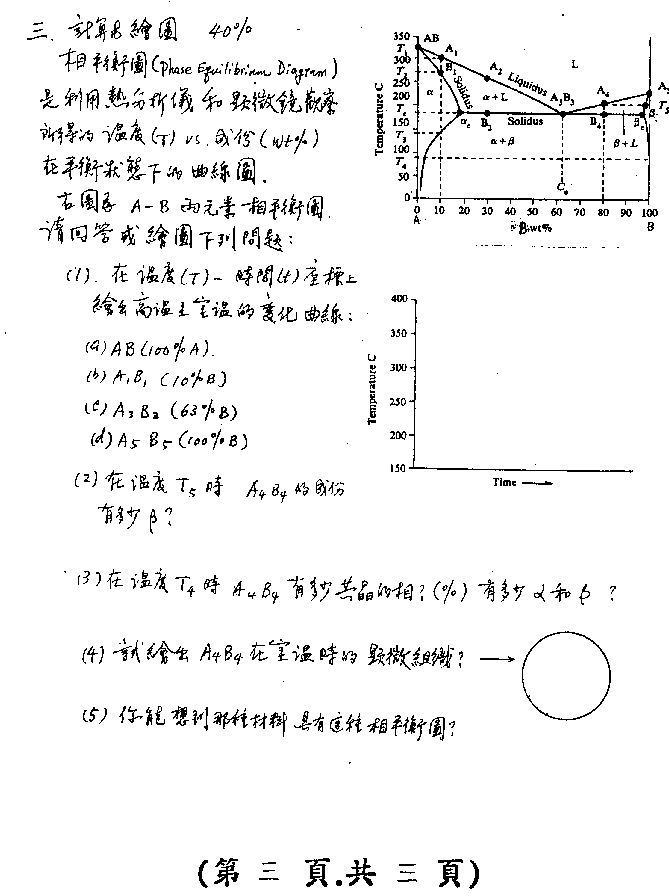 三、計算及繪圖 40%
相平衡圖(Phase Equilibrium Diagram)
是利用熱分析儀和顯微鏡觀察
所得的溫度(T) vs. 成份(wt%)
在平衡狀態下的曲線圖.
右圖為 A-B 兩元素相平衡圖.
請回答或繪圖下列問題:
(1). 在溫度(T)-時間(t)座標上
繪出高溫至室溫的變化曲線:
(a) AB (100%A).
(b) A₁B₁ (10%B)
(c) A₃B₃ (63%B)
(d) A₅B₅ (100%B)
(2) 在溫度 T₅ 時 A₄B₄ 的成份
有多少 β?
(3) 在溫度 T₄ 時 A₄B₄ 有多少共晶的相?(%) 有多少 α 和 β ?
(4) 試繪出 A₄B₄ 在室溫時的顯微組織? →
(5) 你能想到那種材料具有這種相平衡圖?
Temperature C
350
300
250
200
150
100
50
0
AB
A₁
A₂
A₃B₃
A₄
L
Liquidus
Solidus
α
α+L
Solidus
B₃
B₄
T₅
α+β
β+L
T₄
0 10 20 30 40 50 60 70 80 90 100
A
B wt%
B
Temperature C
400
350
300
250
200
150
Time →
(第三頁.共三頁)